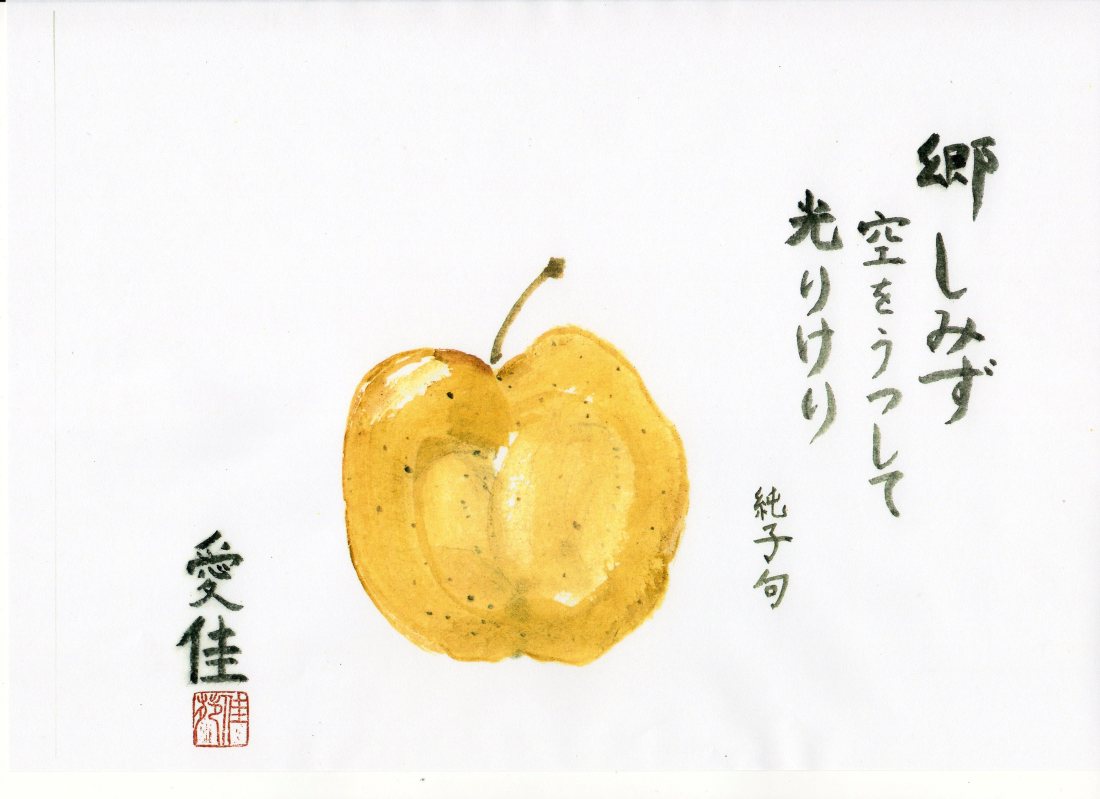 郷しみず
空をうつして
光りけり
純子句
愛佳